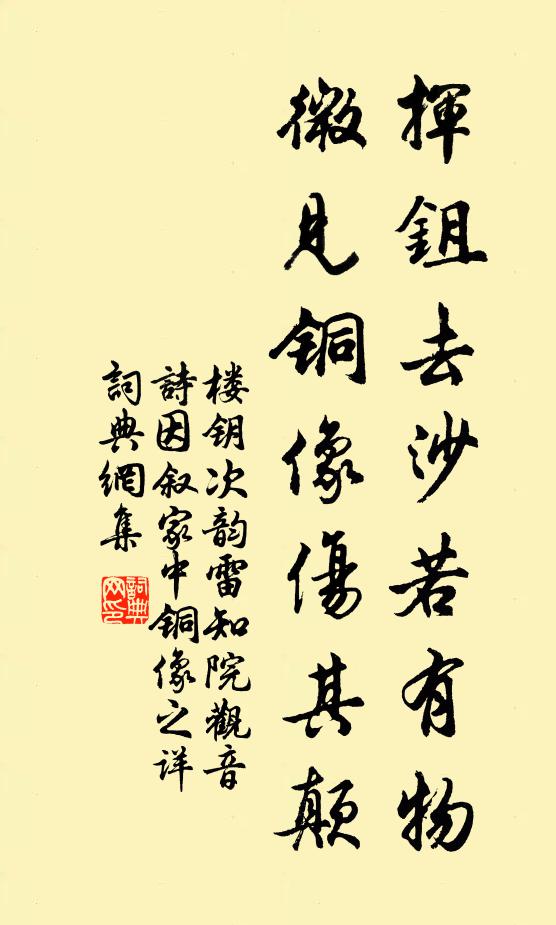 揮鉏去沙若有物
微見铜像傷其顛
楼钥次韵雷知院觀音
詩因叙家中铜像之详
詞典網集
詞典
网印